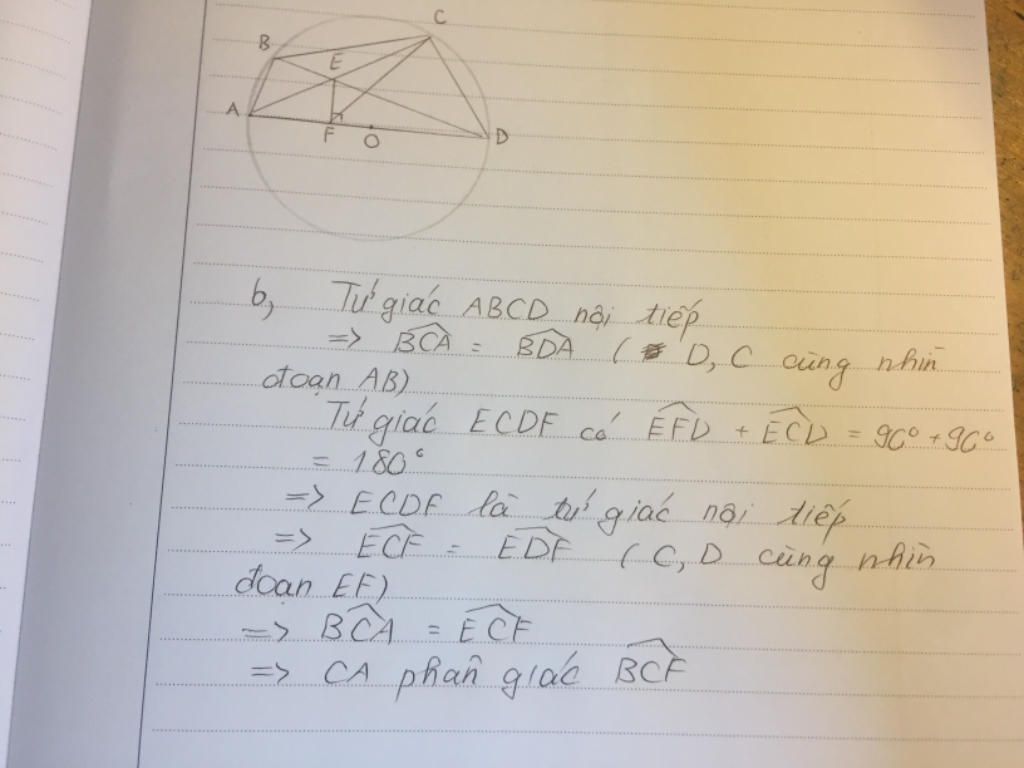 C
B
E
A
F
O
D
b, Tứ giác ABCD nội tiếp
=> \widehat{BCA} = \widehat{BDA} ( D, C cùng nhìn
đoạn AB)
Tứ giác ECDF có \widehat{EFD} + \widehat{ECD} = 90° + 90°
= 180°
=> ECDF là tứ giác nội tiếp
=> \widehat{ECF} = \widehat{EDF} ( C, D cùng nhìn
đoạn EF)
=> \widehat{BCA} = \widehat{ECF}
=> CA phân giác \widehat{BCF}